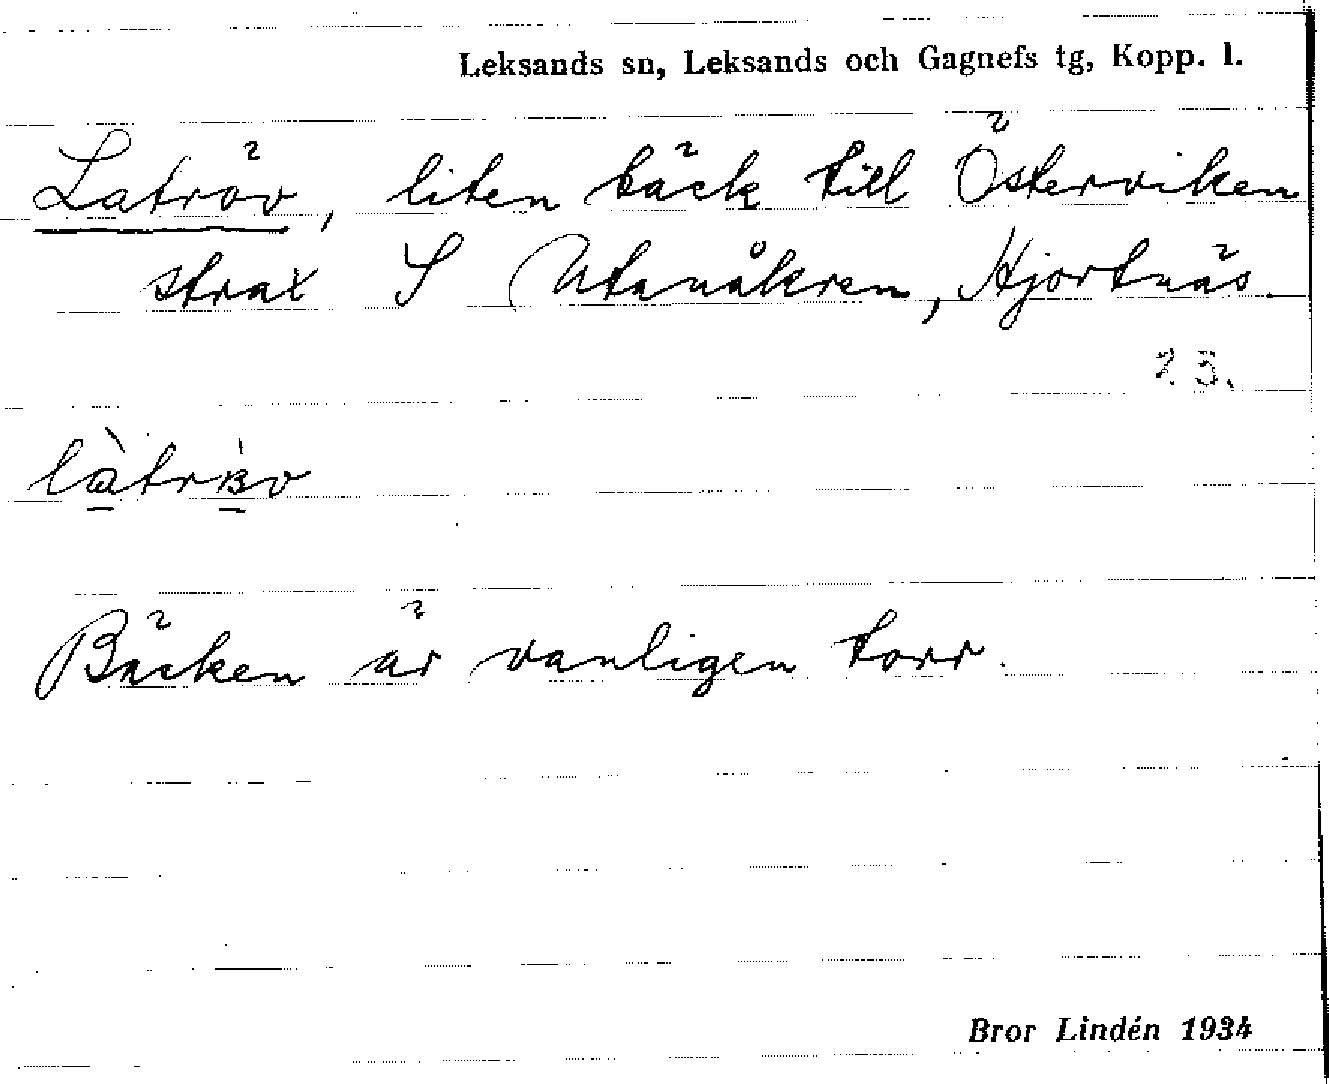 Leksands sn, Leksands och Gagnefs tg, Kopp. l.
Laträv, liten bäck till Österviken
strax S Utanåkren, Hjortnäs
23.
Bäcken är vanligen torr.
Bror Lindén 1934